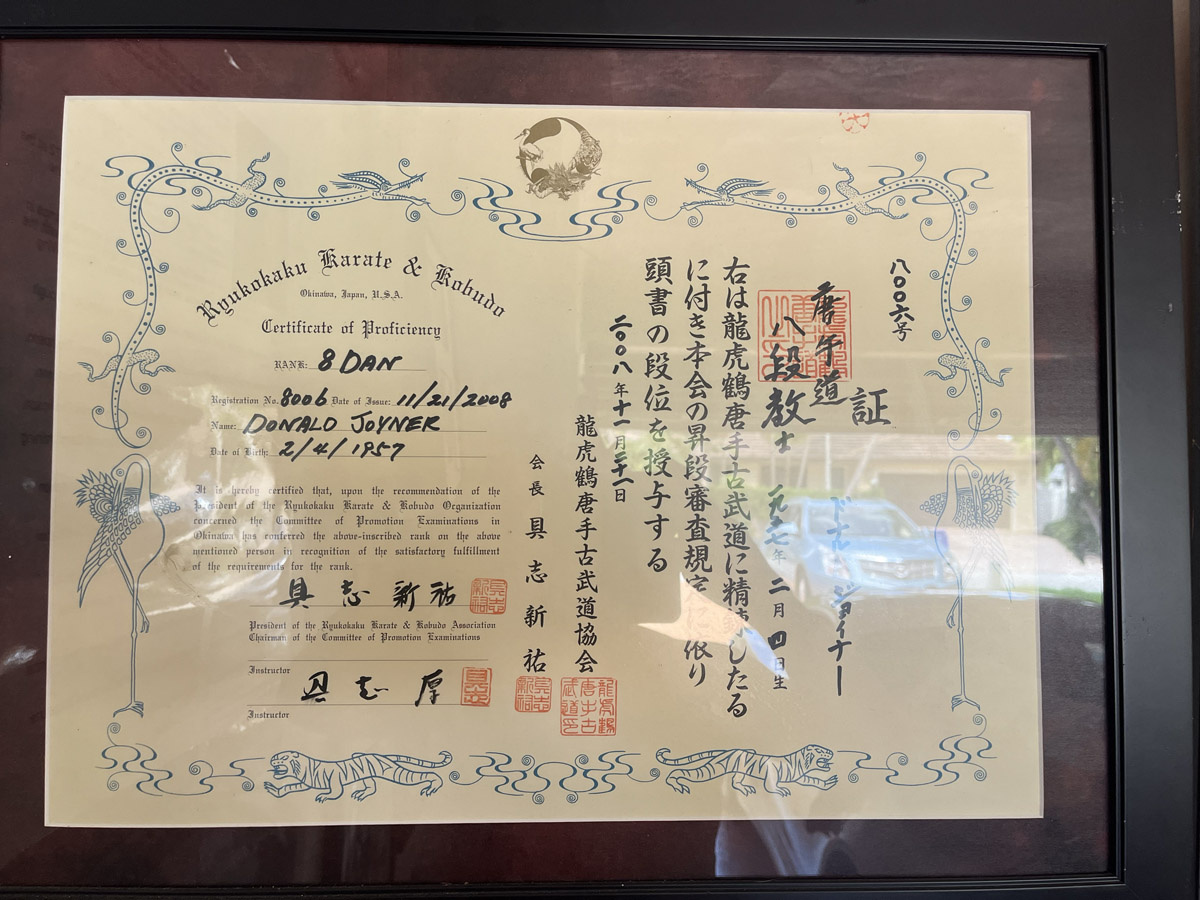 Ryukokaku Karate & Kobudo
Okinawa, Japan, U.S.A.
Certificate of Proficiency
RANK: 8 DAN
Registration No. 8006 Date of Issue: 11/21/2008
Name: DONALD JOYNER
Date of Birth: 2/4/1957
It is hereby certified that, upon the recommendation of the
President of the Ryukokaku Karate & Kobudo Organization
concerned the Committee of Promotion Examinations in
Okinawa has conferred the above-inscribed rank on the above
mentioned person in recognition of the satisfactory fulfillment
of the requirements for the rank.
具志新祐
President of the Ryukokaku Karate & Kobudo Association
Chairman of the Committee of Promotion Examinations
Instructor
具志厚
Instructor
八〇〇六号
証
唐手道
八段教士
ドナル ジョイナー
一九五七年二月四日生
右は龍虎鶴唐手古武道に精練したる
に付き本会の昇段審査規定に依り
頭書の段位を授与する
二〇〇八年十一月二十一日
龍虎鶴唐手古武道協会
会長 具志新祐